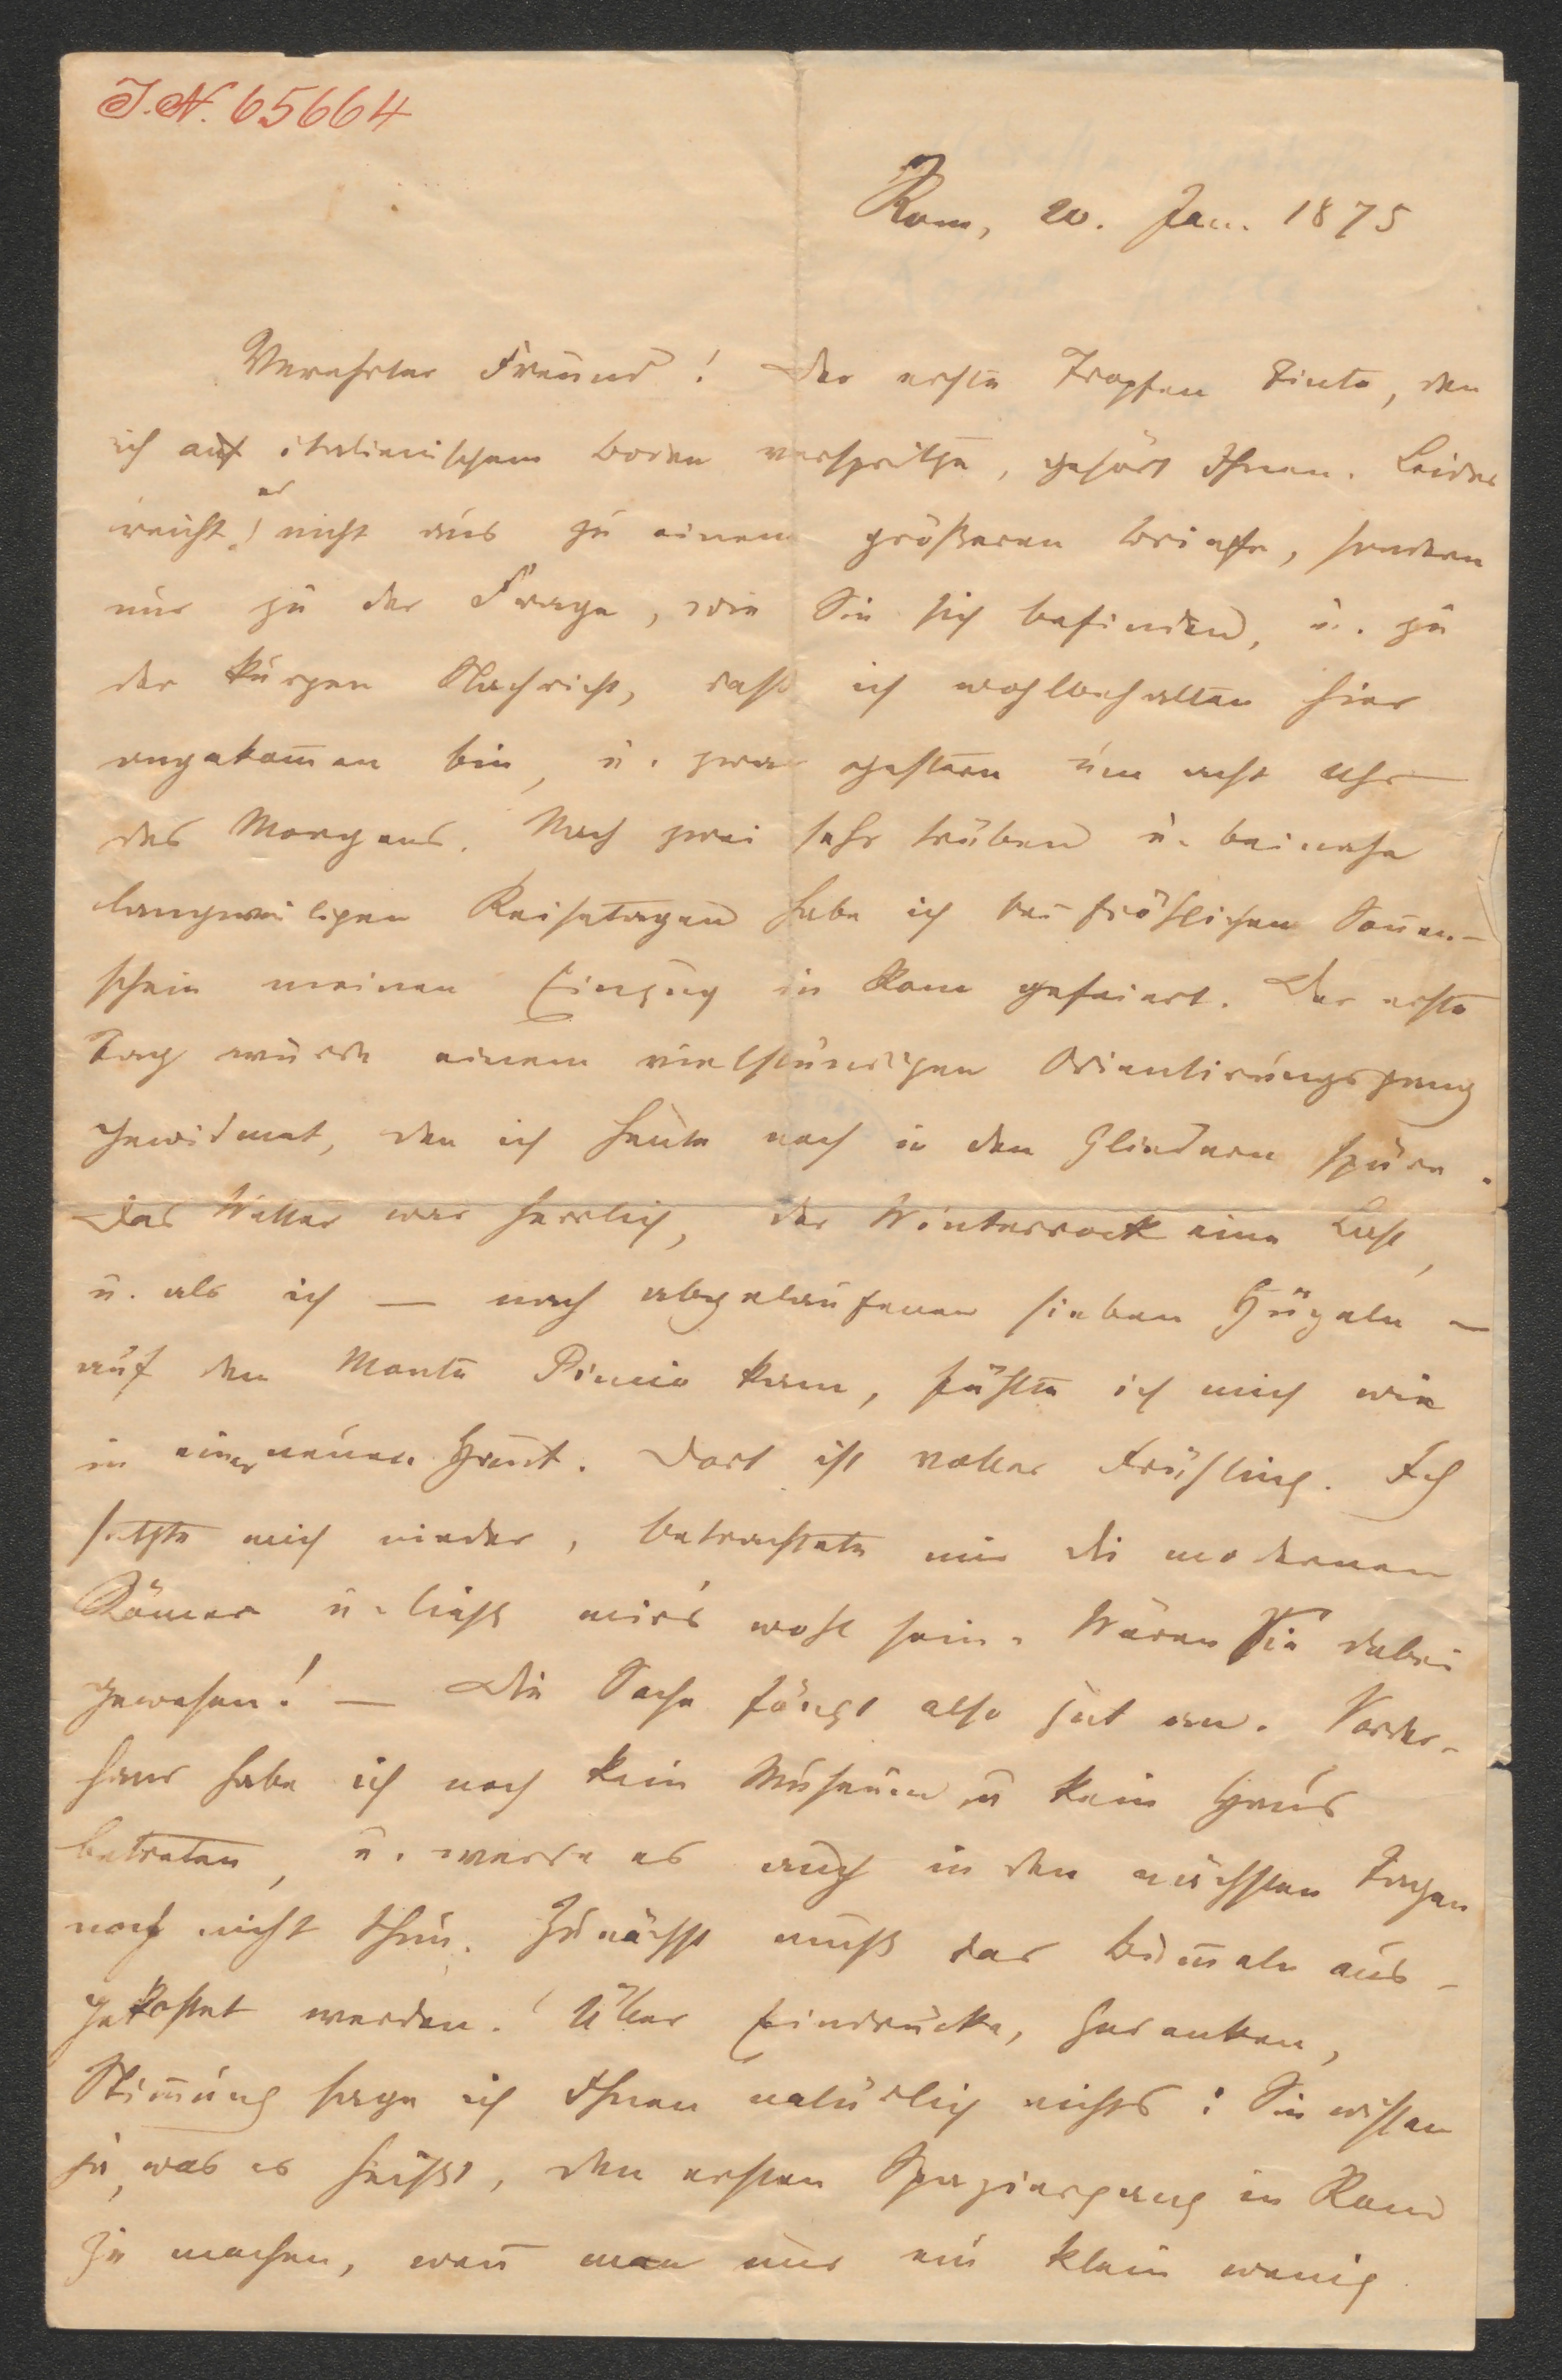 J.N. 65664
Rom, 20. Jan. 1875
Verehrter Freund! Der erste Tropfen Tinte, den
ich auf italienischem Boden verspritze, gehört Ihnen. Leider
reicht er nicht aus zu einem größeren Briefe, sondern
nur zu der Frage, wie Sie sich befinden, u. zu
der kurzen Nachricht, daß ich wohlbehalten hier
angekom̅en bin, u. zwar gestern um acht Uhr
des Morgens. Nach zwei sehr trüben u. beinahe
langweiligen Reisetagen habe ich bei fröhlichem Son̅en-
schein meinen Einzug in Rom gefeiert. Der erste
Tag wurde einem vielstündigen Orientirungsgang
gewidmet, den ich heute noch in den Gliedern spüre.
Das Wetter war herrlich, der Winterrock eine Last,
u. als ich — nach abgelaufenen sieben Hügeln —
auf den Monte Pincio kam, fühlte ich mich wie
in einer neuen Haut. Dort ist voller Frühling. Ich
setzte mich nieder, betrachtete mir die modernen
Römer u. ließ mir's wohl sein. Wären Sie dabei
gewesen! — Die Sache fängt also gut an. Vorder-
hand habe ich noch kein Museum u. kein Haus
betreten, u. werde es auch in den nächsten Tagen
noch nicht thun. Zunächst muß das Bum̅eln aus-
gekostet werden. Über Eindrücke, Gedanken,
Stim̅ung sage ich Ihnen natürlich nichts: Sie wissen
ja, was es heißt, den ersten Spaziergang in Rom
zu machen, wen̅ man nur ein klein wenig